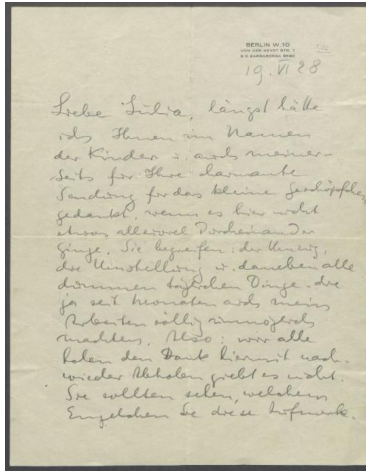 BERLIN W. 10
VON DER HEYDT STR.
19. VI 28
Liebe Julia, längst hätte
ich Ihnen im Namen
der Kinder u. auch meiner-
seits für Ihre charmante
Sendung für das kleine Geschöpfchen
gedankt, wenn es hier nicht
etwas allzuviel Durcheinander
ginge. Sie begreifen: der Umzug,
die Umstellung u. daneben alle
dummen täglichen Dinge, die
ja seit Monaten auch mein
Arbeiten völlig unmöglich
machten. Also: wir alle
holen den Dank hiermit nach.
wieder giebt es nicht.
Sie sollten sehen, welchem
Engelchen Sie diese